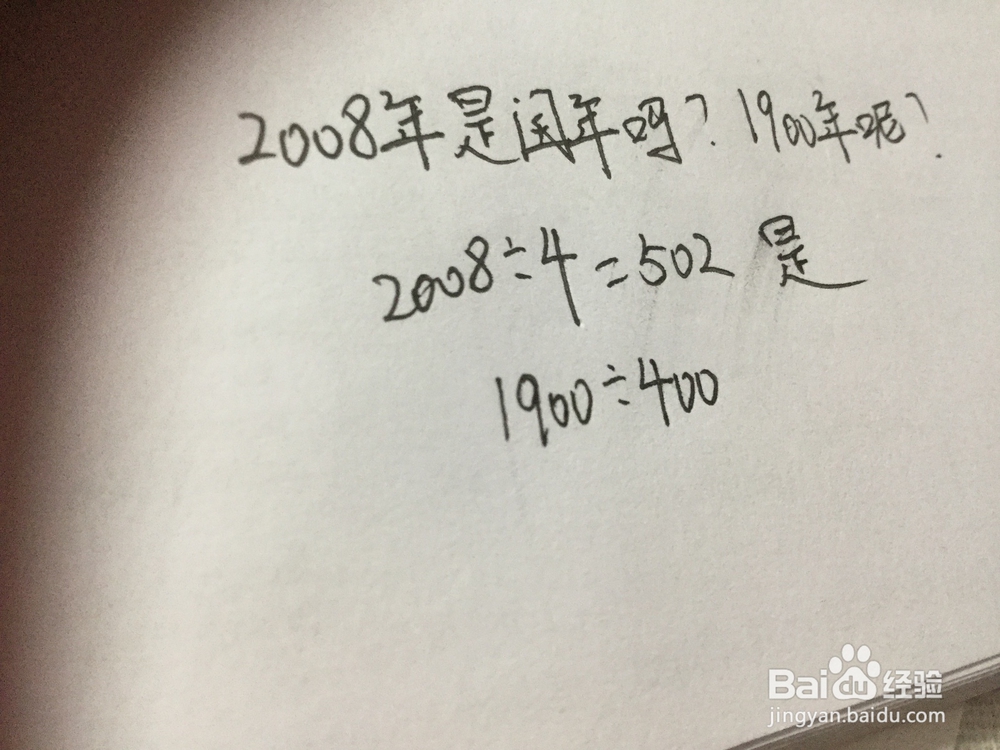 2008年是闰年吗？1900年呢？
2008÷4=502 是
1900÷400
Baidu 经验
jingyan.baidu.com